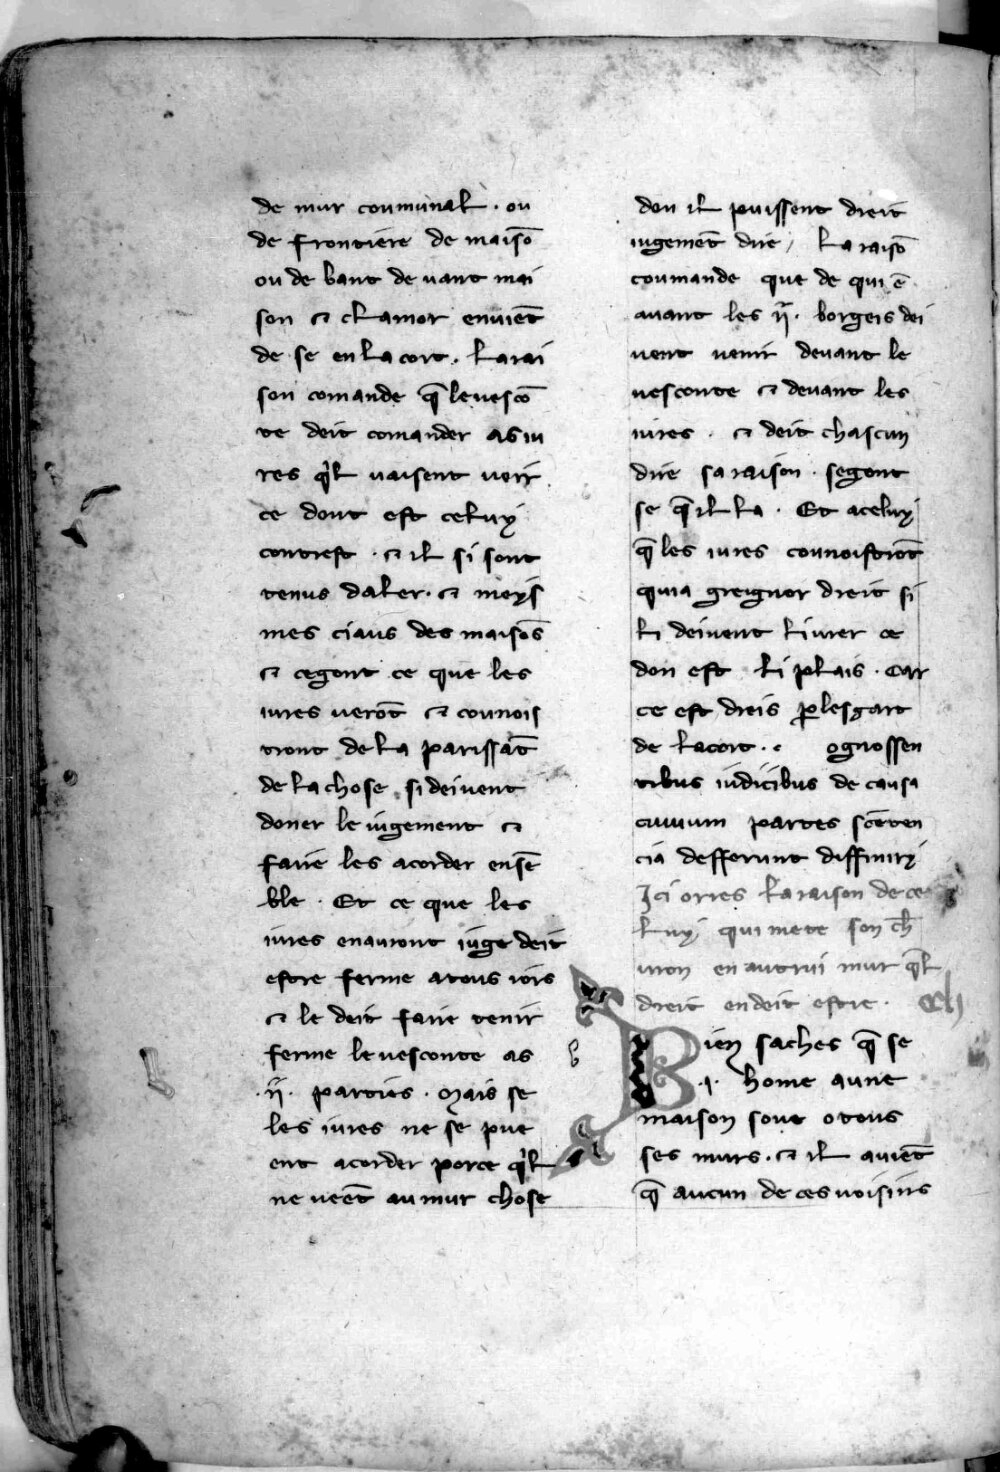 de mur coumunal · ou
de frontiere de maisō
ou de banc de uant mai
son ⁊ clamor enuiēt
de se en la cort · la rai
son comande q̄ le uescō
te deit comander as iu
res q̓l uaisent ueir
ce dont est celuy
contrest · ⁊ il si sont
tenus daler · ⁊ meys
mes ciaus des maisōs
⁊ cegont ce que les
iures uerōt ⁊ counois
tront de la parissāt
de la chose si deiuent
doner le iugement ⁊
faire les acorder ensē
ble · Et ce que les
iures enauront iuge deit
estre ferme atous iors
⁊ le deit faire tenir
ferme le uesconte as
·ii· parties · Mais se
les iures ne se pue
ent acorder porce q̓l
ne ueēt au mur chose
don il puissent dreit
iugemēt dire / La raisō
coumande que de qui ē
auant les ·ii· borgeis dei
uent uenir deuant le
uesconte ⁊ deuant les
iures · ⁊ deit chascun
dire sa raison · segont
se q̄ il la · Et aceluy
q̄ les iures counoistrōt
quia greignor dreit si
li deiuent liurer ce
don est li plais · Car
ce est dreis ꝑ lesgart
de lacort · c ognossen
tibus iudicibus de causa
ciuium partes scēten
cia defferunt diffinity
Ici orres la raison de ce
luy qui mete son ch̄
uron en autrui mur q̄l
dreit endeit estre · Ch
Bien saches q̄ se
·i· home aune
maison soue o tous
ses murs · ⁊ il auiēt
q̄ aucun de ces uoisins